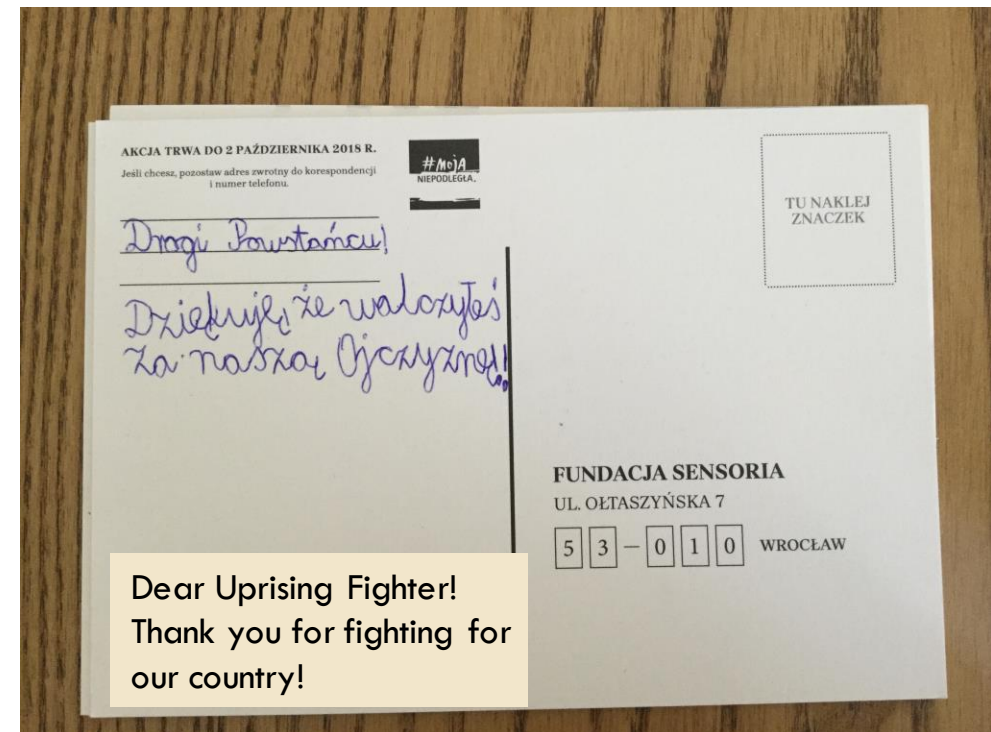 AKCJA TRWA DO 2 PAŹDZIERNIKA 2018 R.
Jeśli chcesz, pozostaw adres zwrotny do korespondencji
i numer telefonu.
#MOJA
NIEPODLEGŁA.
Drogi Powstańcu!
Dziękuję, że walczyłeś
za naszą Ojczyznę!!
TU NAKLEJ
ZNACZEK
FUNDACJA SENSORIA
UL. OŁTASZYŃSKA 7
53-010 WROCŁAW
Dear Uprising Fighter!
Thank you for fighting for
our country!